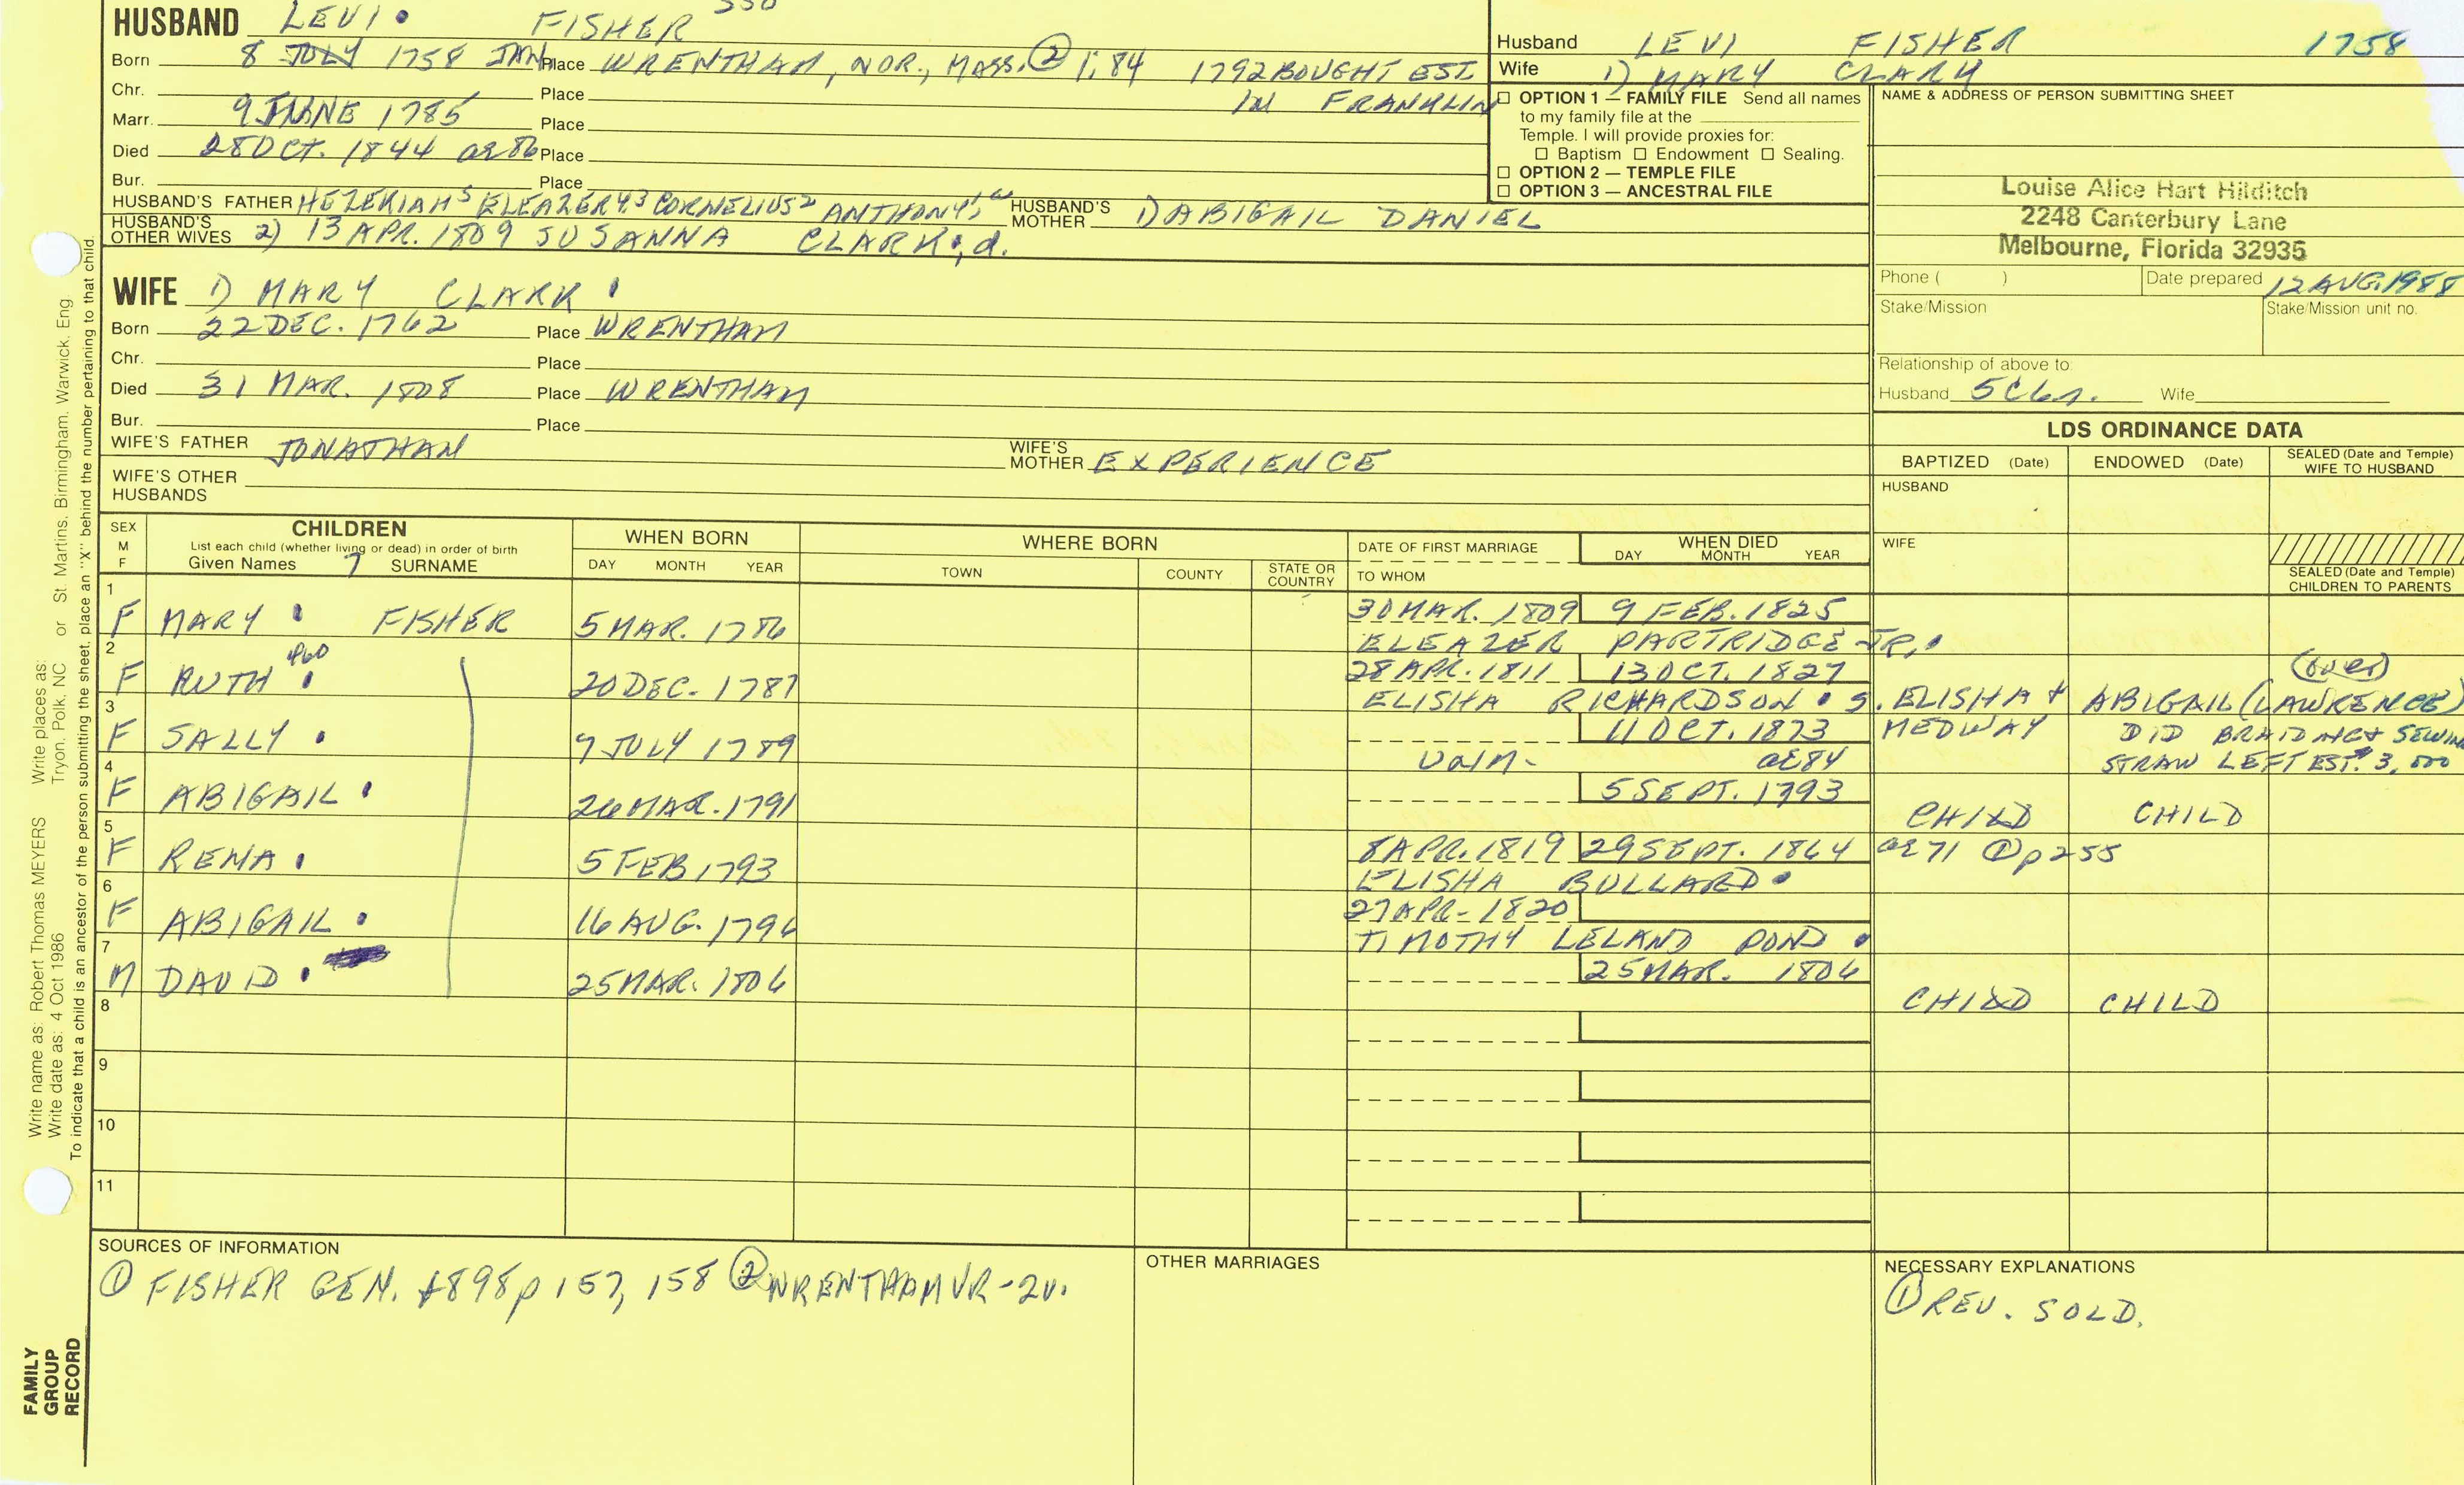 HUSBAND LEVI FISHER
Born 8 JULY 1758 JAN Place WRENTHAM, NOR., MASS. ② 1:84 1792 BOUGHT EST.
IN FRANKLIN
Chr. Place
Marr. 9 JUNE 1785 Place
Died 28 OCT. 1844 ae 86 Place
Bur. Place
HUSBAND'S FATHER HEZEKIAH 5 ELEAZER 4,3 CORNELIUS 2 ANTHONY 1, HUSBAND'S MOTHER 1) ABIGAIL DANIEL
HUSBAND'S OTHER WIVES 2) 13 APR. 1809 SUSANNA CLARK, d.
WIFE 1) MARY CLARK
Born 22 DEC. 1762 Place WRENTHAM
Chr. Place
Died 31 MAR. 1808 Place WRENTHAM
Bur. Place
WIFE'S FATHER JONATHAN WIFE'S MOTHER EXPERIENCE
WIFE'S OTHER HUSBANDS
Husband LEVI FISHER 1758
Wife 1) MARY CLARK
OPTION 1 — FAMILY FILE Send all names
to my family file at the
Temple. I will provide proxies for:
Baptism Endowment Sealing.
OPTION 2 — TEMPLE FILE
OPTION 3 — ANCESTRAL FILE
NAME & ADDRESS OF PERSON SUBMITTING SHEET
Louise Alice Hart Hilditch
2248 Canterbury Lane
Melbourne, Florida 32935
Phone ( ) Date prepared 12 AUG. 1988
Stake/Mission Stake/Mission unit no.
Relationship of above to:
Husband 5C6r. Wife
LDS ORDINANCE DATA
BAPTIZED (Date) ENDOWED (Date) SEALED (Date and Temple) WIFE TO HUSBAND
HUSBAND
WIFE
SEALED (Date and Temple) CHILDREN TO PARENTS
SEX M F
CHILDREN
List each child (whether living or dead) in order of birth
Given Names 7 SURNAME
WHEN BORN
DAY MONTH YEAR
WHERE BORN
TOWN COUNTY STATE OR COUNTRY
DATE OF FIRST MARRIAGE
TO WHOM
WHEN DIED
DAY MONTH YEAR
1 F MARY FISHER 5 MAR. 1786 30 MAR. 1809 9 FEB. 1825
ELEAZER PARTRIDGE JR.
2 F RUTH 460 20 DEC. 1787 28 APR. 1811 13 OCT. 1827 (over)
ELISHA RICHARDSON S. ELISHA & ABIGAIL (LAWRENCE)
3 F SALLY 9 JULY 1789 11 OCT. 1873 MEDWAY DID BRAIDING & SEWING
unm. ae 84 STRAW LEFT EST. $3,000
4 F ABIGAIL 26 MAR. 1791 5 SEPT. 1793
CHILD CHILD
5 F RENA 5 FEB 1793 8 APR. 1819 29 SEPT. 1864 ae 71 ① p 255
ELISHA BULLARD
6 F ABIGAIL 16 AUG. 1796 27 APR. 1820
TIMOTHY LELAND POND
7 M DAVID 25 MAR. 1806 25 MAR. 1806
CHILD CHILD
8
9
10
11
SOURCES OF INFORMATION
① FISHER GEN. 1898 p 157, 158 ② WRENTHAM VR - 2v.
OTHER MARRIAGES
NECESSARY EXPLANATIONS
① REV. SOLD.
Write name as: Robert Thomas MEYERS Write places as: Tryon, Polk, NC or St. Martins, Birmingham, Warwick, Eng
Write date as: 4 Oct 1986
To indicate that a child is an ancestor of the person submitting the sheet, place an "X" behind the number pertaining to that child.
FAMILY
GROUP
RECORD